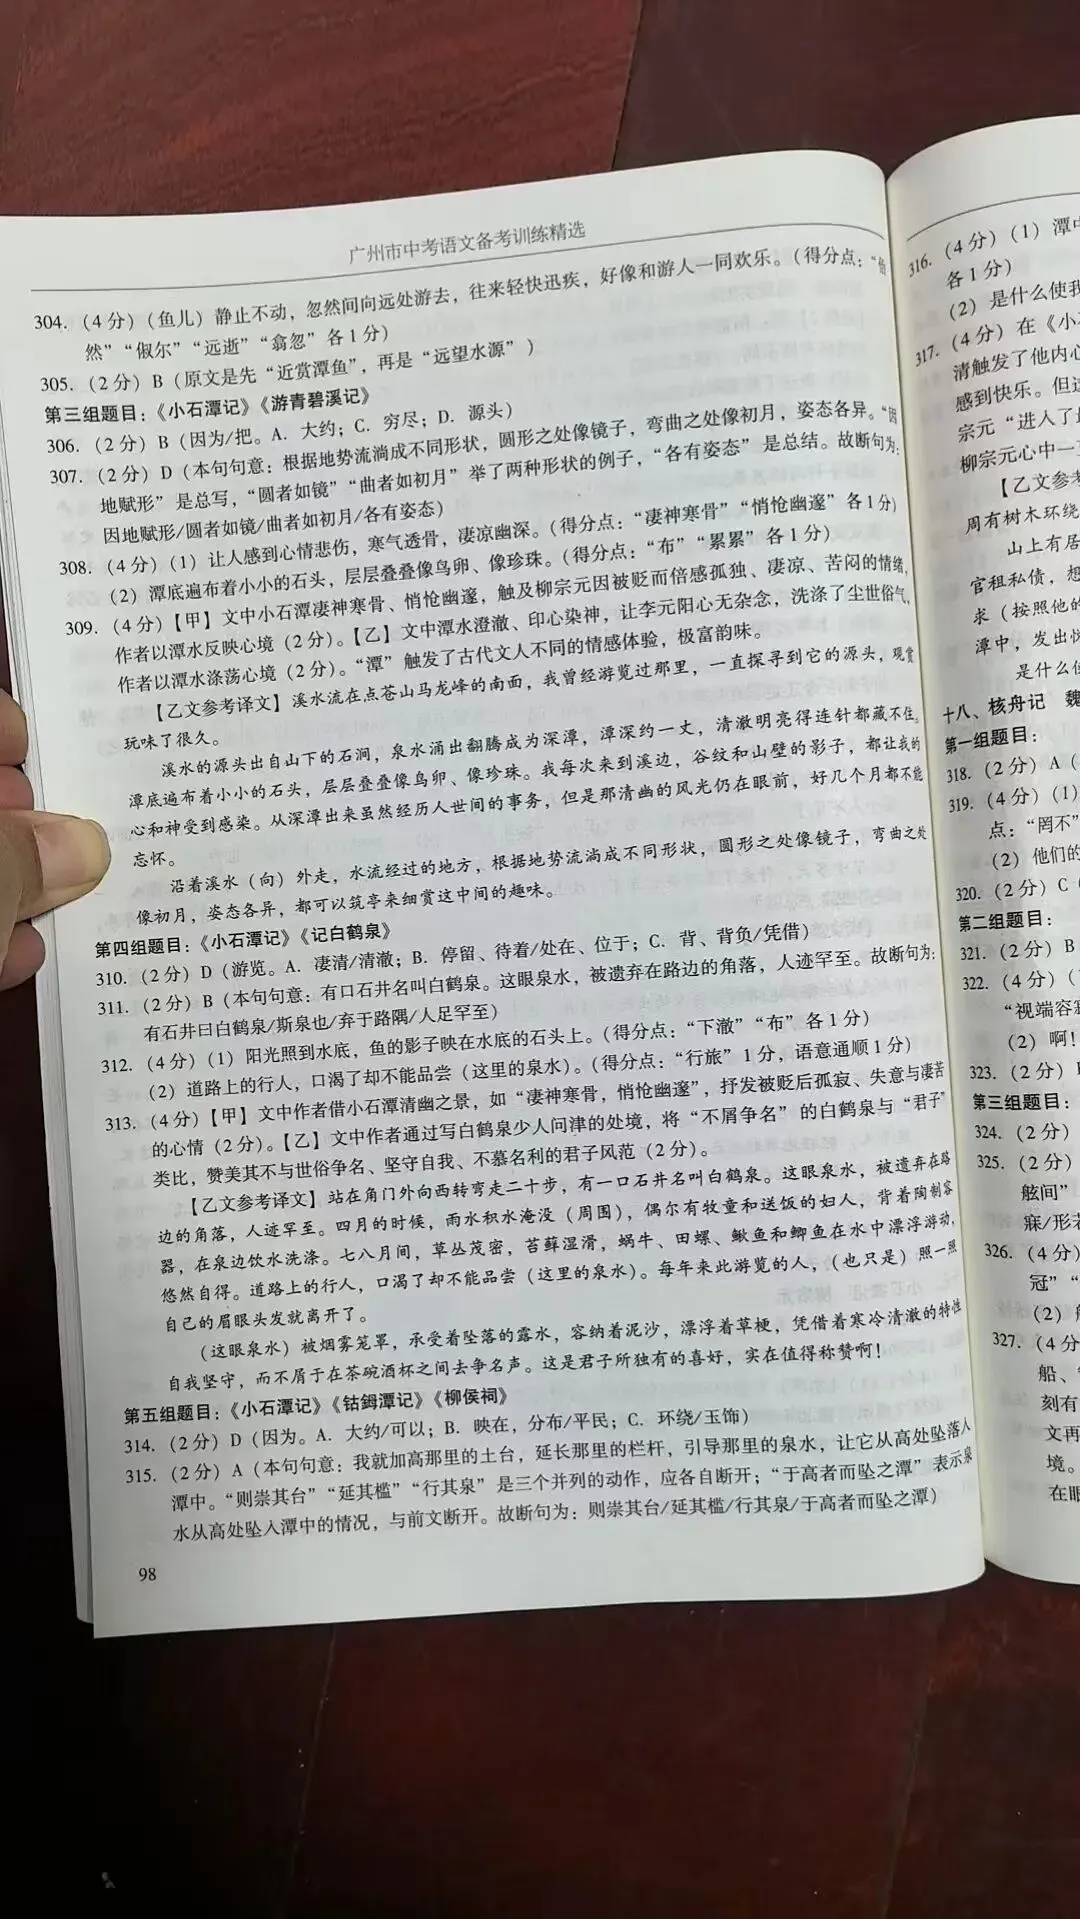 广州市中考语文备考训练精选
304. (4分)(鱼儿)静止不动，忽然间向远处游去，往来轻快迅疾，好像和游人一同欢乐。(得分点：“佁
然”“俶尔”“远逝”“翕忽”各1分)
305. (2分) B (原文是先“近赏潭鱼”，再是“远望水源”)
第三组题目：《小石潭记》《游青碧溪记》
306. (2分) B (因为/把。A. 大约；C. 穷尽；D. 源头)
307. (2分) D (本句句意：根据地势流淌成不同形状，圆形之处像镜子，弯曲之处像初月，姿态各异。“因
地赋形”是总写，“圆者如镜”“曲者如初月”举了两种形状的例子，“各有姿态”是总结。故断句为：
因地赋形/圆者如镜/曲者如初月/各有姿态)
308. (4分)(1) 让人感到心情悲伤，寒气透骨，凄凉幽深。(得分点：“凄神寒骨”“悄怆幽邃”各1分)
(2) 潭底遍布着小小的石头，层层叠叠像鸟卵、像珍珠。(得分点：“布”“累累”各1分)
309. (4分)【甲】文中小石潭凄神寒骨、悄怆幽邃，触及柳宗元因被贬而倍感孤独、凄凉、苦闷的情绪，
作者以潭水反映心境 (2分)。【乙】文中潭水澄澈、印心染神，让李元阳心无杂念，洗涤了尘世俗气，
作者以潭水涤荡心境 (2分)。“潭”触发了古代文人不同的情感体验，极富韵味。
【乙文参考译文】溪水流在点苍山马龙峰的南面，我曾经游览过那里，一直探寻到它的源头，观赏
玩味了很久。
溪水的源头出自山下的石涧，泉水涌出翻腾成为深潭，潭深约一丈，清澈明亮得连针都藏不住。
潭底遍布着小小的石头，层层叠叠像鸟卵、像珍珠。我每次来到溪边，谷纹和山壁的影子，都让我的
心和神受到感染。从深潭出来虽然经历人世间的事务，但是那清幽的风光仍在眼前，好几个月都不能
忘怀。
沿着溪水 (向) 外走，水流经过的地方，根据地势流淌成不同形状，圆形之处像镜子，弯曲之处
像初月，姿态各异，都可以筑亭来细赏这中间的趣味。
第四组题目：《小石潭记》《记白鹤泉》
310. (2分) D (游览。A. 凄清/清澈；B. 停留、待着/处在、位于；C. 背、背负/凭借)
311. (2分) B (本句句意：有口石井名叫白鹤泉。这眼泉水，被遗弃在路边的角落，人迹罕至。故断句为：
有石井曰白鹤泉/斯泉也/弃于路隅/人足罕至)
312. (4分)(1) 阳光照到水底，鱼的影子映在水底的石头上。(得分点：“下澈”“布”各1分)
(2) 道路上的行人，口渴了却不能品尝 (这里的泉水)。(得分点：“行旅”1分，语意通顺1分)
313. (4分)【甲】文中作者借小石潭清幽之景，如“凄神寒骨，悄怆幽邃”，抒发被贬后孤寂、失意与凄苦
的心情 (2分)。【乙】文中作者通过写白鹤泉少人问津的处境，将“不屑争名”的白鹤泉与“君子”
类比，赞美其不与世俗争名、坚守自我、不慕名利的君子风范 (2分)。
【乙文参考译文】站在角门外向西转弯走二十步，有一口石井名叫白鹤泉。这眼泉水，被遗弃在路
边的角落，人迹罕至。四月的时候，雨水积水淹没 (周围)，偶尔有牧童和送饭的妇人，背着陶制容
器，在泉边饮水洗涤。七八月间，草丛茂密，苔藓湿滑，蜗牛、田螺、鳅鱼和鲫鱼在水中漂浮游动，
悠然自得。道路上的行人，口渴了却不能品尝 (这里的泉水)。每年来此游览的人，(也只是) 照一照
自己的眉眼头发就离开了。
(这眼泉水) 被烟雾笼罩，承受着坠落的露水，容纳着泥沙，漂浮着草梗，凭借着寒冷清澈的特性
自我坚守，而不屑于在茶碗酒杯之间去争名声。这是君子所独有的喜好，实在值得称赞啊！
第五组题目：《小石潭记》《钴鉧潭记》《柳侯祠》
314. (2分) D (因为。A. 大约/可以；B. 映在，分布/平民；C. 环绕/玉饰)
315. (2分) A (本句句意：我就加高那里的土台，延长那里的栏杆，引导那里的泉水，让它从高处坠落入
潭中。“则崇其台”“延其槛”“行其泉”是三个并列的动作，应各自断开；“于高者而坠之潭”表示泉
水从高处坠入潭中的情况，与前文断开。故断句为：则崇其台/延其槛/行其泉/于高者而坠之潭)
98
316. (4分)(1) 潭中
各1分)
(2) 是什么使我
317. (4分) 在《小石
清触发了他内心
感到快乐。但这
宗元“进入了
柳宗元心中一
【乙文参考
周有树木环绕
山上有居
官租私债，想
求 (按照他的
潭中，发出
是什么使
十八、核舟记 魏
第一组题目：
318. (2分) A (
319. (4分)(1)
点：“罔不”
(2) 他们的
320. (2分) C (
第二组题目：
321. (2分) B
322. (4分)(
“视端容寂
(2) 啊！
323. (2分)
第三组题目：
324. (2分)
325. (2分)
舷间”
寐/形
326. (4分)
冠”“
(2)
327. (4分
船、
刻有
文再
境。
在